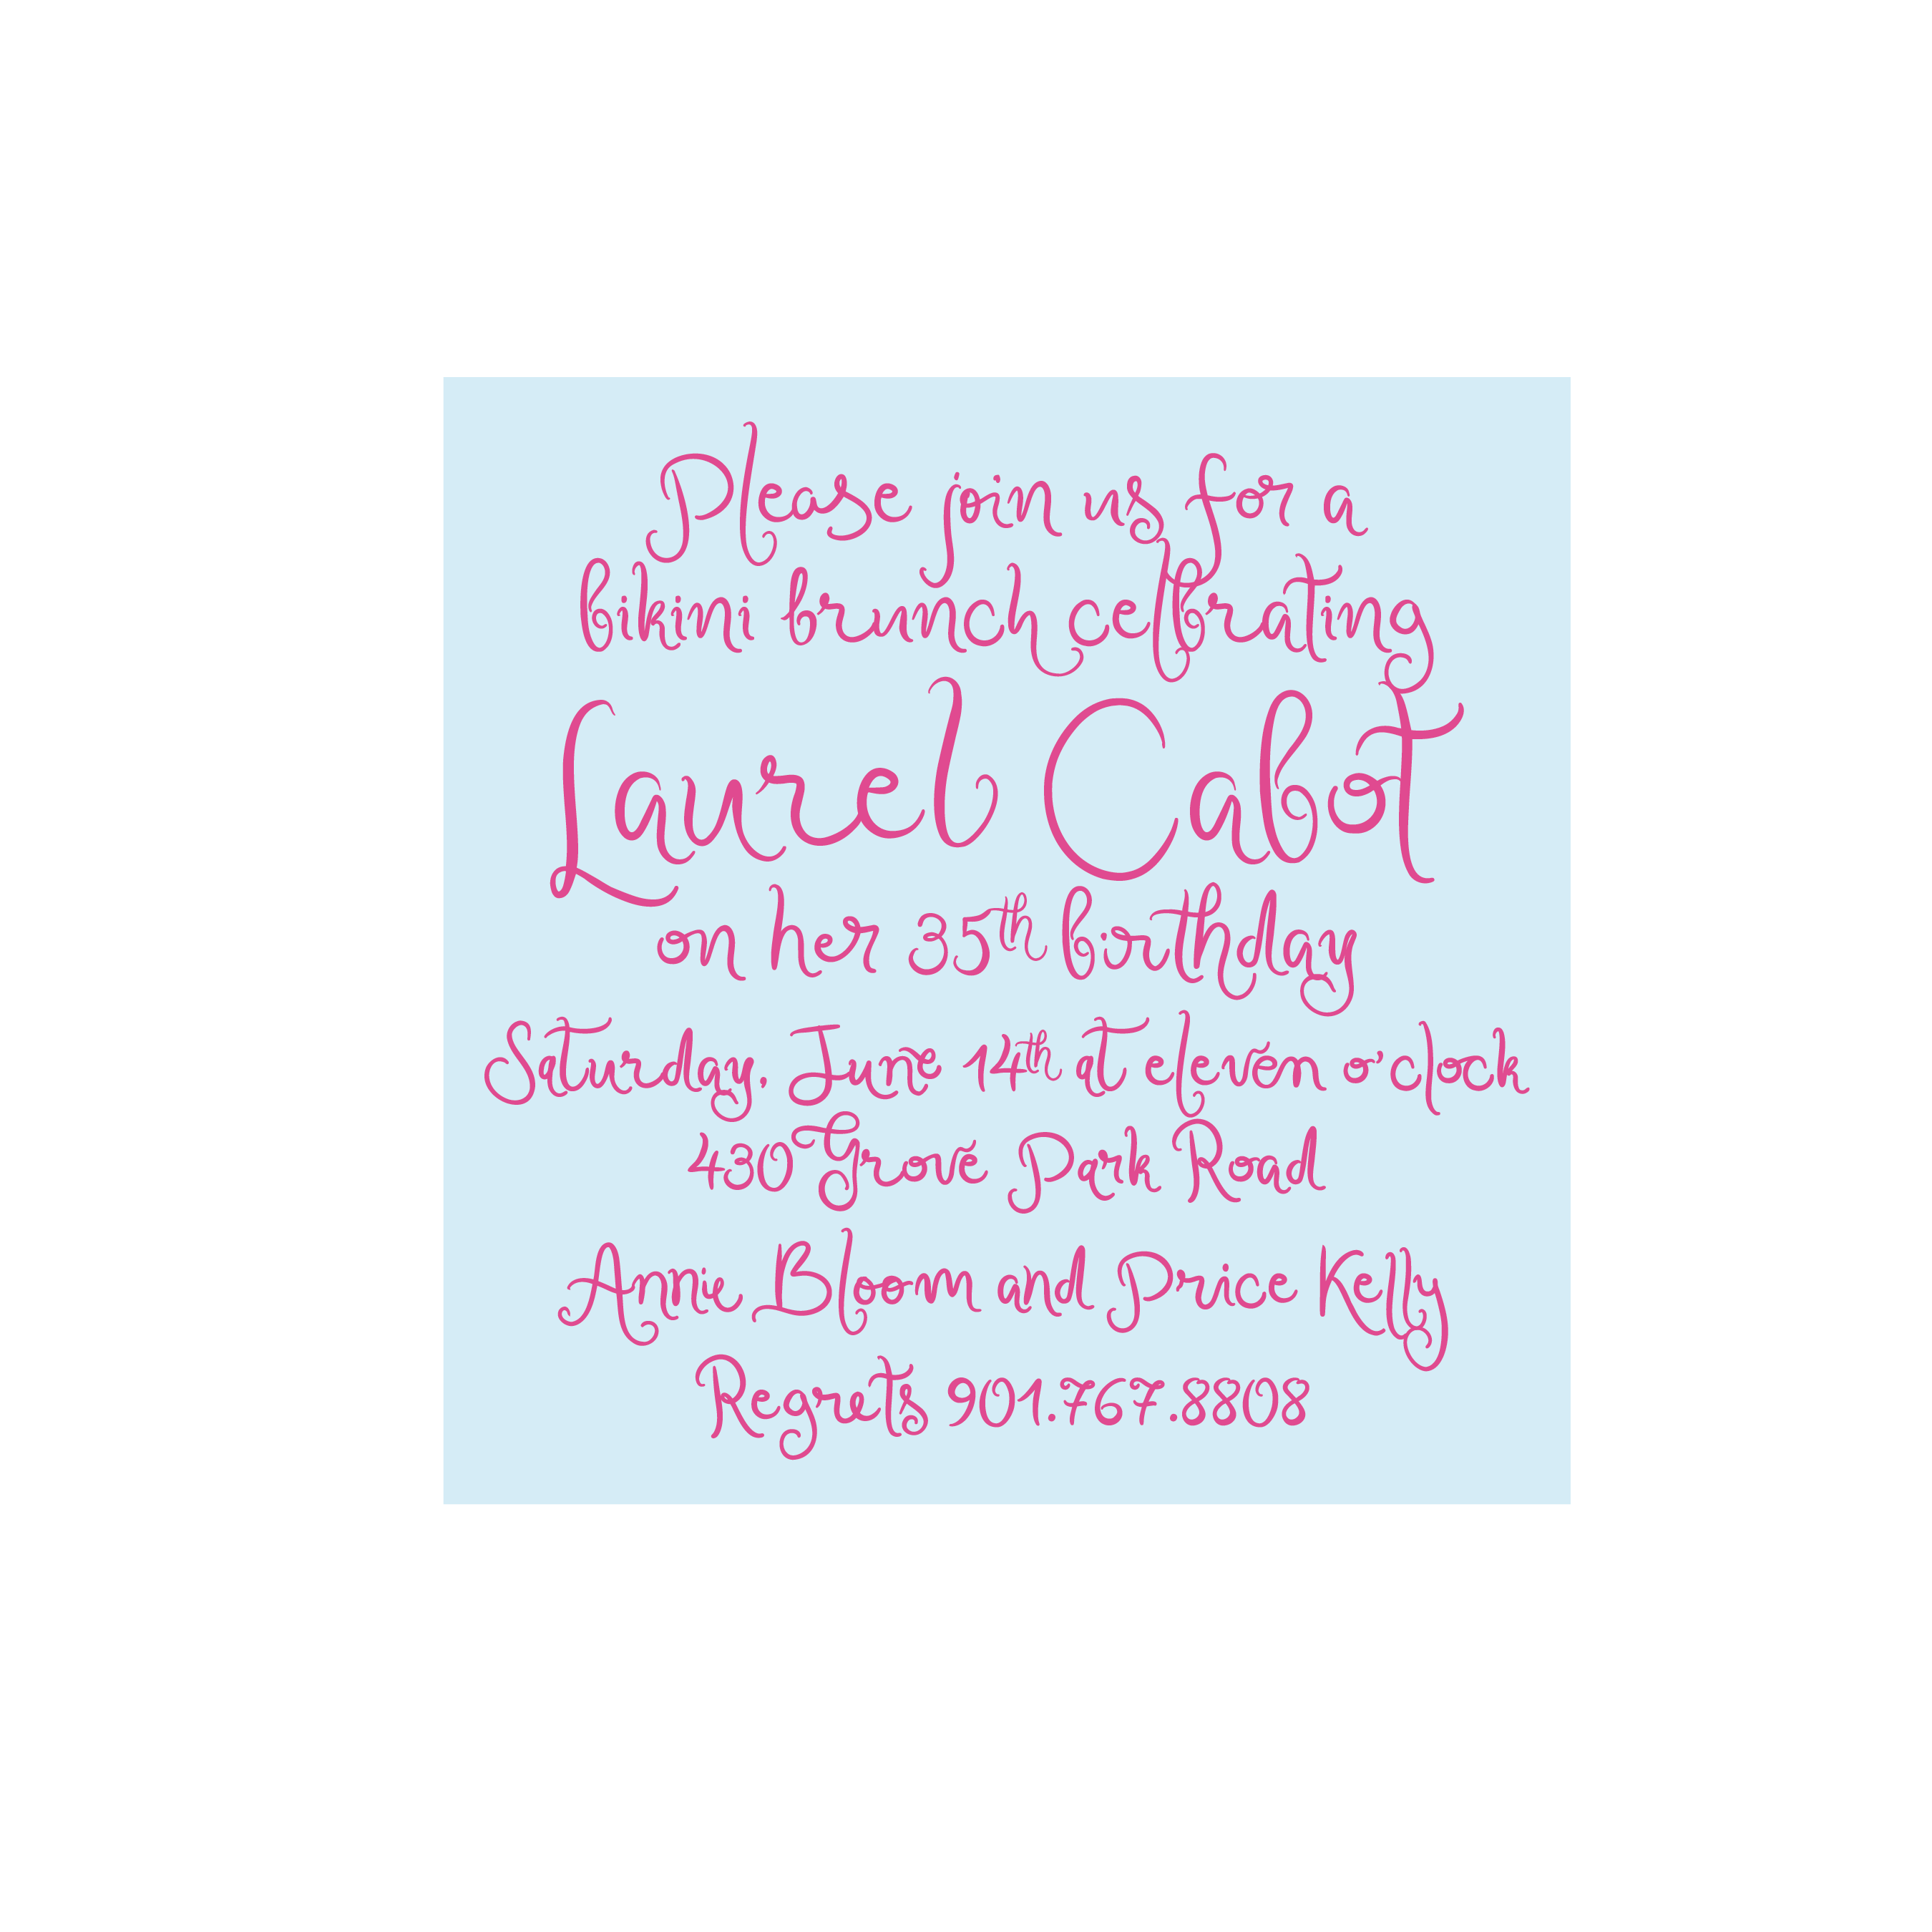 Please join us for a
bikini brunch celebrating
Laurel Cabot
on her 35th birthday
Saturday, June 14th at eleven o'clock
430 Grove Park Road
Annie Bloom and Price Kelly
Regrets 901.767.8808